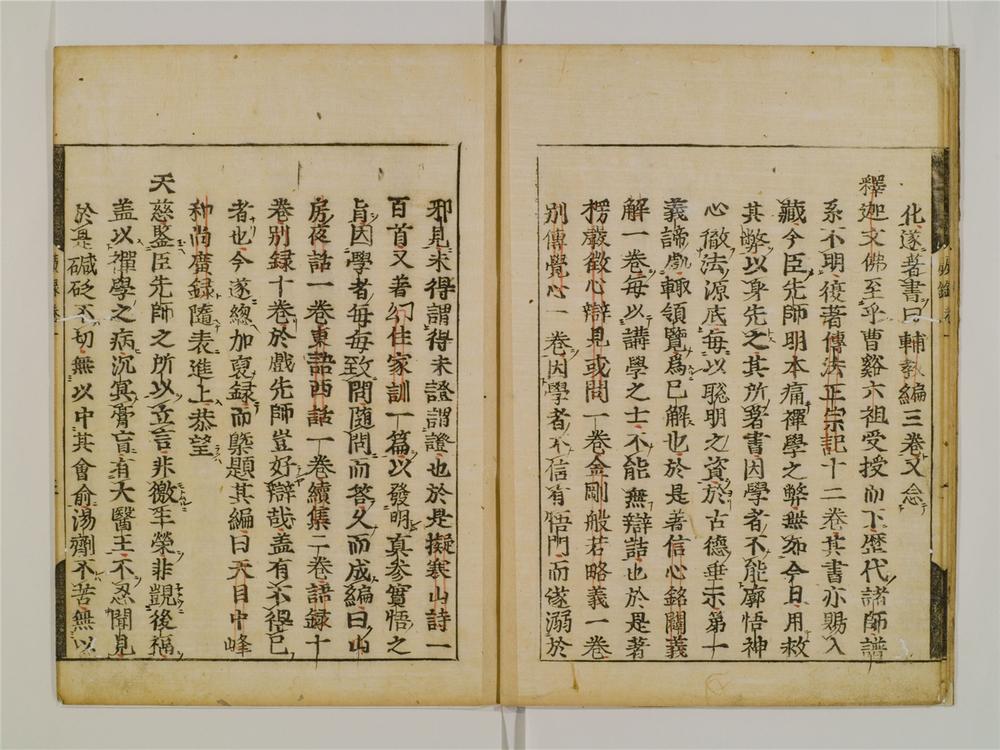 化遂著書曰輔教編三卷又念
釋迦文佛至乎曹谿六祖受授而下歷代諸師譜
系不明復著傳法正宗記十二卷其書亦賜入
藏今臣先師明本痛禪學之弊無如今日用救
其弊以身先之其所著書因學者不能廓悟神
心徹法源底每以聡明之資於古德垂示第一
義諦輒領覽為已解也於是著信心銘闢義
解一卷每以講學之士不能無辯詰也於是著
楞嚴徵心辯見或問一卷金剛般若略義一卷
別傳覺心一卷因學者不信有悟門而遂溺於
邪見未得謂得未證謂證也於是擬寒山詩一
百首又著幻住家訓一篇以發明真參實悟之
旨因學者每每致問隨問而答久而成編曰山
房夜話一卷東語西話一卷續集二卷語録十
卷別録十卷於戲先師豈好辯哉盖有不得已
者也今遂總加裒録而槩題其編曰天目中峰
和尚廣録隨表進上恭望
天慈鑒臣先師之所以立言非徼生榮非覬後福
盖以禪學之病沉冥膏肓有大醫王不忍聞見
於是鍼砭不切無以中其會俞湯劑不苦無以